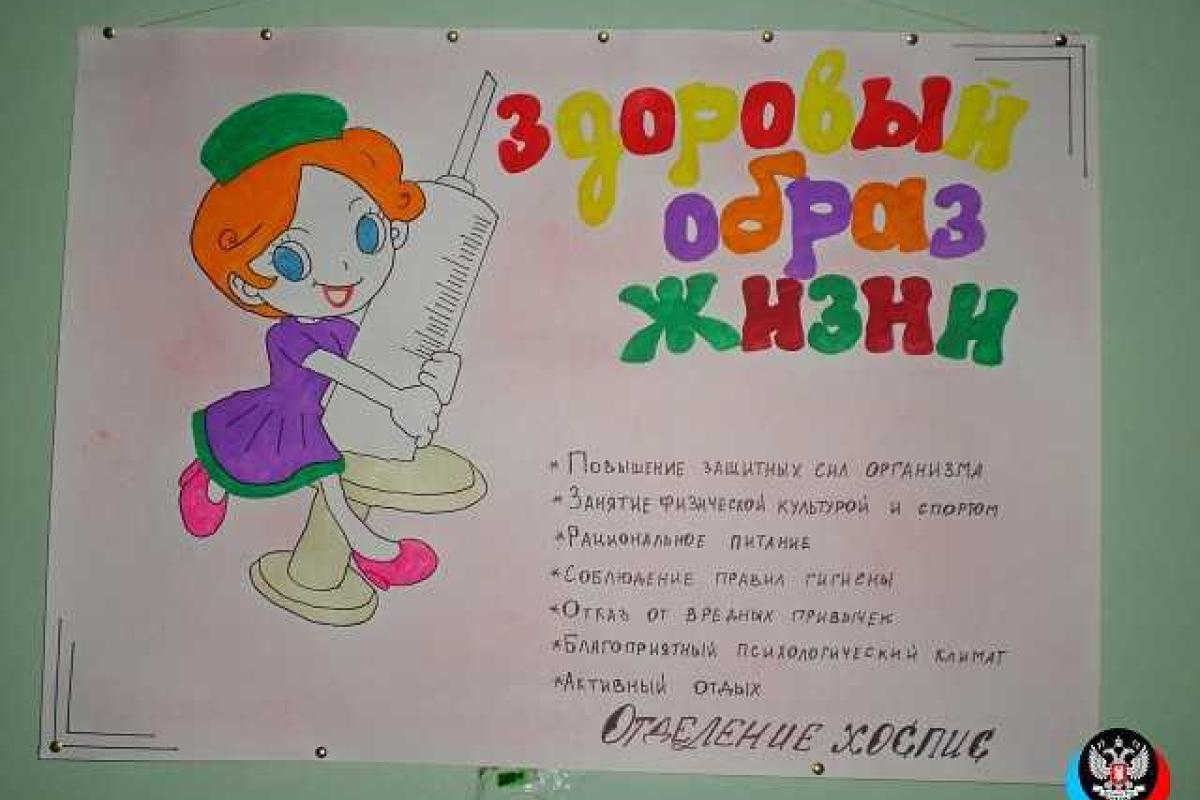 здоровый
образ
жизни
* Повышение защитных сил организма
* Занятие физической культурой и спортом
* Рациональное питание
* Соблюдение правил гигиены
* Отказ от вредных привычек
* Благоприятный психологический климат
* Активный отдых
Отделение хоспис